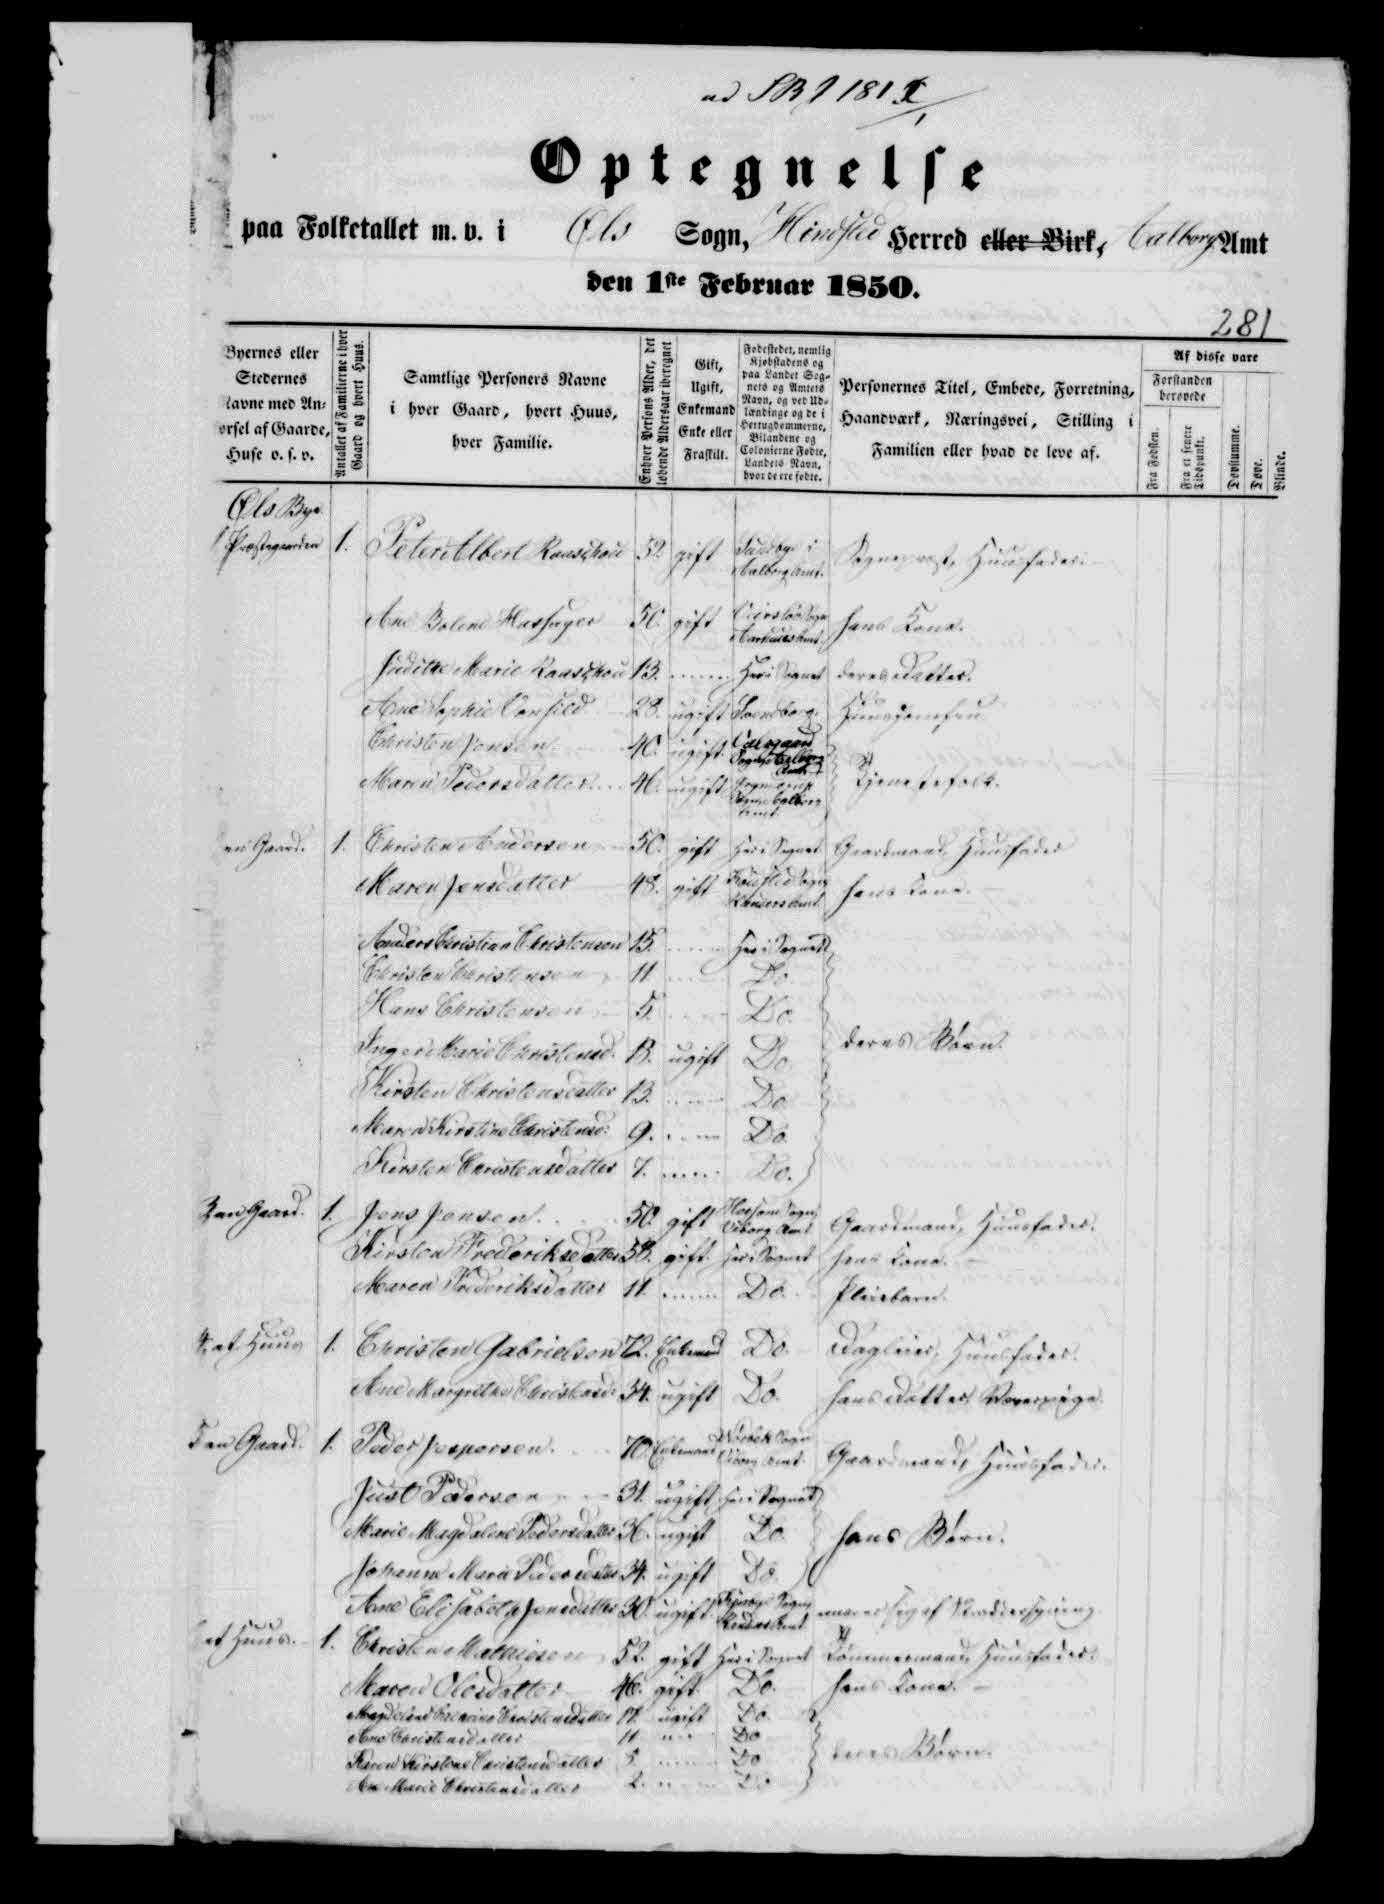 Optegnelse
paa Folketallet m. v. i Øls Sogn, Hindsted Herred eller Birk, Aalborg Amt
den 1ste Februar 1850.
281
Byernes eller Stedernes Navne med An-
førsel af Gaarde, Huse o. s. v.
Antallet af Familierne i hver Gaard og hvert Huus.
Samtlige Personers Navne
i hver Gaard, hvert Huus,
hver Familie.
Enhver Persons Alder, det løbende Aldersaar iberegnet
Gift,
Ugift,
Enkemand
Enke eller
Fraskilt.
Fødestedet, nemlig
Kjøbstadens og
paa Landet Sog-
nets og Amtets
Navn, og ved Ud-
lændinge og de i
Hertugdømmerne,
Bilandene og
Colonierne Fødte,
Landets Navn,
hvor de ere fødte.
Personernes Titel, Embede, Forretning,
Haandværk, Næringsvei, Stilling i
Familien eller hvad de leve af.
Af disse vare
Forstanden
berøvede
Fra Fødslen.
Fra et senere Tidspunkt.
Døvstumme.
Døve.
Blinde.
Øls Bye
Præstegaarden 1. Peter Albert Raaschou 52. gift Sundbye i Aalborg Amt. Sognepræst, Huusfader
Ane Bolene Hasager 50. gift Sogn Aarhuus Amt. hans Kone.
Judithe Marie Raaschou 13. Her i Sognet deres Datter.
Ane Sophie 28. ugift Svendborg. Huusjomfru
Christen Jensen 40. ugift. Sogn Aalborg Amt
Maren Pedersdatter 46. ugift Sogn Aalborg Amt Tjenestefolk.
en Gaard. 1. Christen Andersen 50. gift Her i Sognet Gaardmand, Huusfader
Maren Jensdatter 48. gift Sogn Randers Amt hans Kone.
Anders Christian Christensen 15. Her i Sognet
Christen Christensen 11 Do.
Hans Christensen 5. Do.
Inger Marie Christensd. ugift Do. deres Børn.
Kirsten Christensdatter 13. Do.
Maren Kirstine Christensd: 9. Do.
Kirsten Christensdatter 7. Do.
3, en Gaard. 1. Jens Jensen. 50. gift Sogn Viborg Amt Gaardmand, Huusfader.
Kirsten Frederiksdatter 58. gift. Her i Sognet hans Kone.
Maren Frederiksdatter 11. Do. Pleiebarn.
4, et Huus 1. Christen Gabrielsen 72. Enkemand Do. Dagleier, Huusfader.
Ane Margrethe Christensd: 34. ugift Do. hans Datter, Væverpige.
5 en Gaard. 1. Peder Jespersen. 70. Enkemand Sogn Viborg Amt. Gaardmand, Huusfader.
Just Pedersen 31. ugift Her i Sognet
Marie Magdalene Pedersdatter 36. ugift Do. hans Børn.
Johanne Marie Pedersdatter 34. ugift Do.
Ane Elisabeth Jensdatter 30. ugift. Sogn Randers Amt ernærer sig af
et Huus. 1. Christen Mathiesen 52. gift Her i Sognet Tømmermand, Huusfader.
Maren Olesdatter 46. gift. Do. hans Kone.
Christensdatter 17. ugift Do.
Ane Christensdatter 11 Do
Karen Kirstine Christensdatter 5. Do deres Børn.
Ane Marie Christensdatter 2. Do